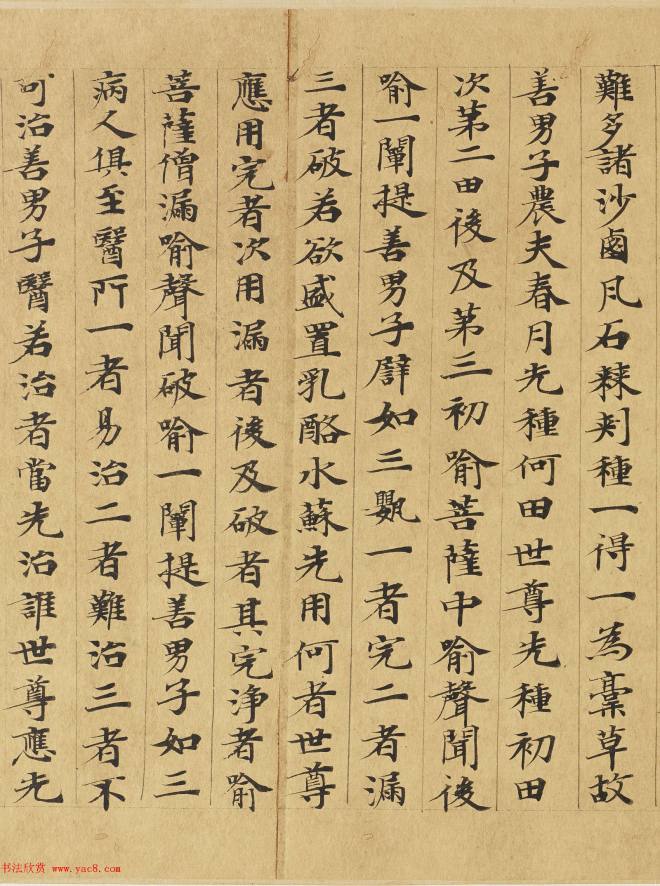 難多諸沙鹵凡石棘刺種一得一為藁草故
善男子農夫春月先種何田世尊先種初田
次第二田後及第三初喻菩薩中喻聲聞後
喻一闡提善男子譬如三甖一者完二者漏
三者破若欲盛置乳酪水蘇先用何者世尊
應用完者次用漏者後及破者其完淨者喻
菩薩僧漏喻聲聞破喻一闡提善男子如三
病人俱至醫所一者易治二者難治三者不
可治善男子醫若治者當先治誰世尊應先
书法欣赏 www.yac8.com